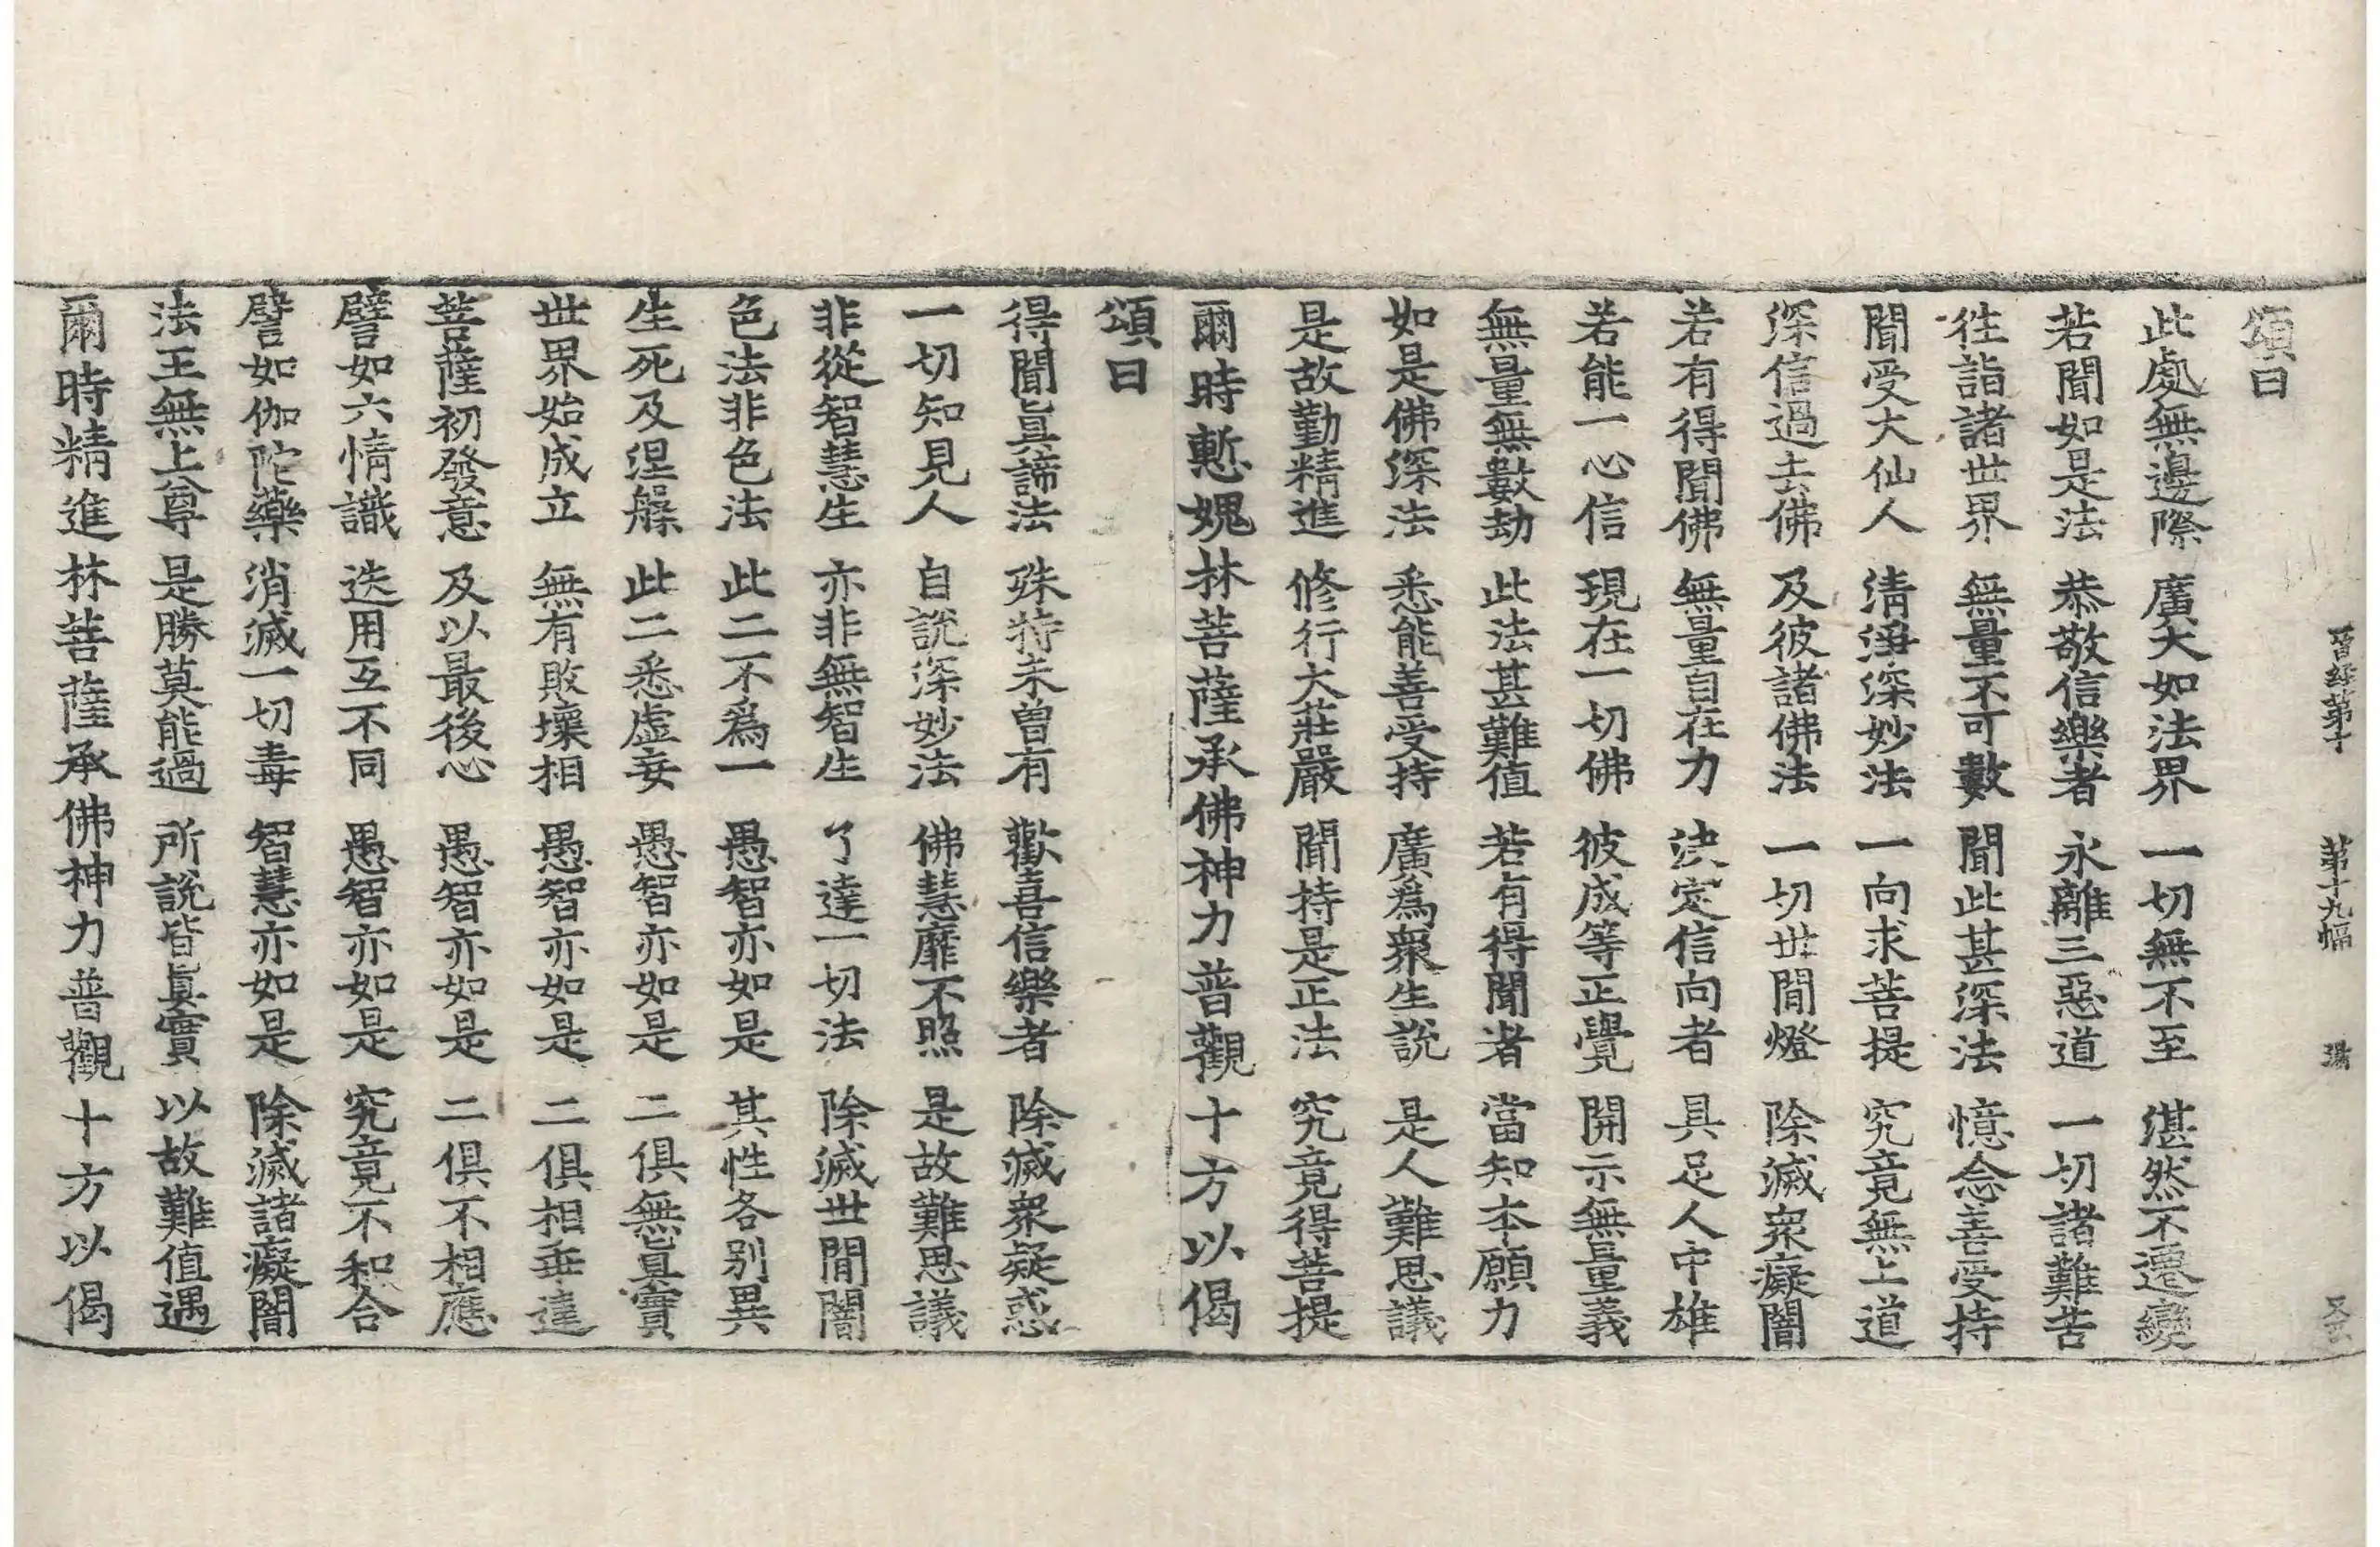 晉經第十　第十九幅
頌曰
此處無邊際　廣大如法界　一切無不至　湛然不遷變
若聞如是法　恭敬信樂者　永離三惡道　一切諸難苦
往詣諸世界　無量不可數　聞此甚深法　憶念善受持
聞受大仙人　淸淨深妙法　一向求菩提　究竟無上道
深信過去佛　及彼諸佛法　一切世間燈　除滅衆癡闇
若有得聞佛　無量自在力　決定信向者　具足人中雄
若能一心信　現在一切佛　彼成等正覺　開示無量義
無量無數劫　此法甚難値　若有得聞者　當知本願力
如是佛深法　悉能善受持　廣爲衆生說　是人難思議
是故勤精進　修行大莊嚴　聞持是正法　究竟得菩提
爾時慙媿林菩薩承佛神力普觀十方以偈
頌曰
得聞眞諦法　殊特未曾有　歡喜信樂者　除滅衆疑惑
一切知見人　自說深妙法　佛慧靡不照　是故難思議
非從智慧生　亦非無智生　了達一切法　除滅世間闇
色法非色法　此二不爲一　愚智亦如是　其性各別異
生死及涅槃　此二悉虛妄　愚智亦如是　二俱無眞實
世界始成立　無有敗壞相　愚智亦如是　二俱相乖違
菩薩初發意　及以最後心　愚智亦如是　二俱不相應
譬如六情識　迭用互不同　愚智亦如是　究竟不和合
譬如伽陀藥　消滅一切毒　智慧亦如是　除滅諸癡闇
法王無上尊　是勝莫能過　所說皆眞實　以故難値遇
爾時精進林菩薩承佛神力普觀十方以偈